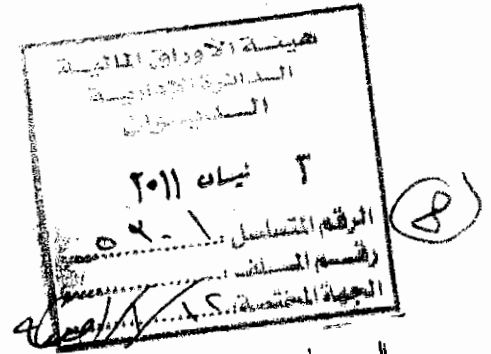 هيئة الأوراق المالية
الدائرة الإدارية
الديوان
٣ نيسان ٢٠١١
الرقم المتسلسل
رقم الملف
الجهة المختصة
8